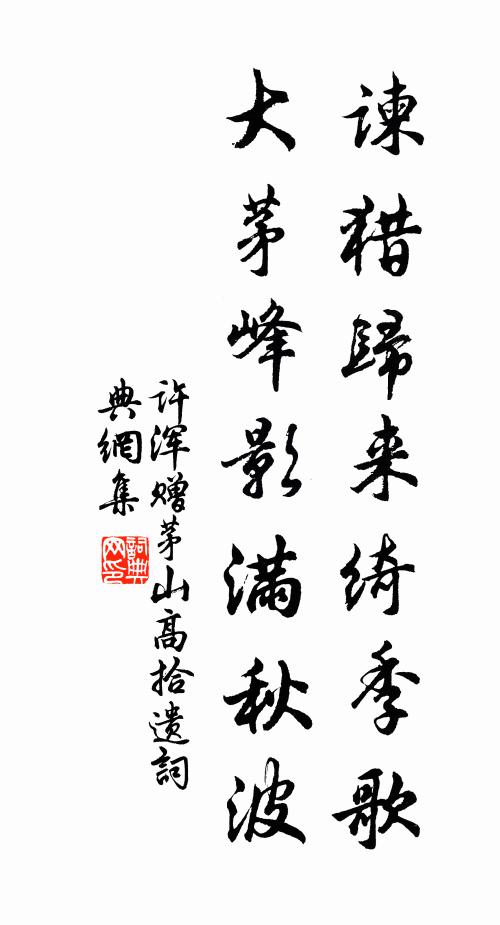 谏猎歸来绮季歌
大茅峰影满秋波
许浑赠茅山高拾遗詞
典網集
詞典網印